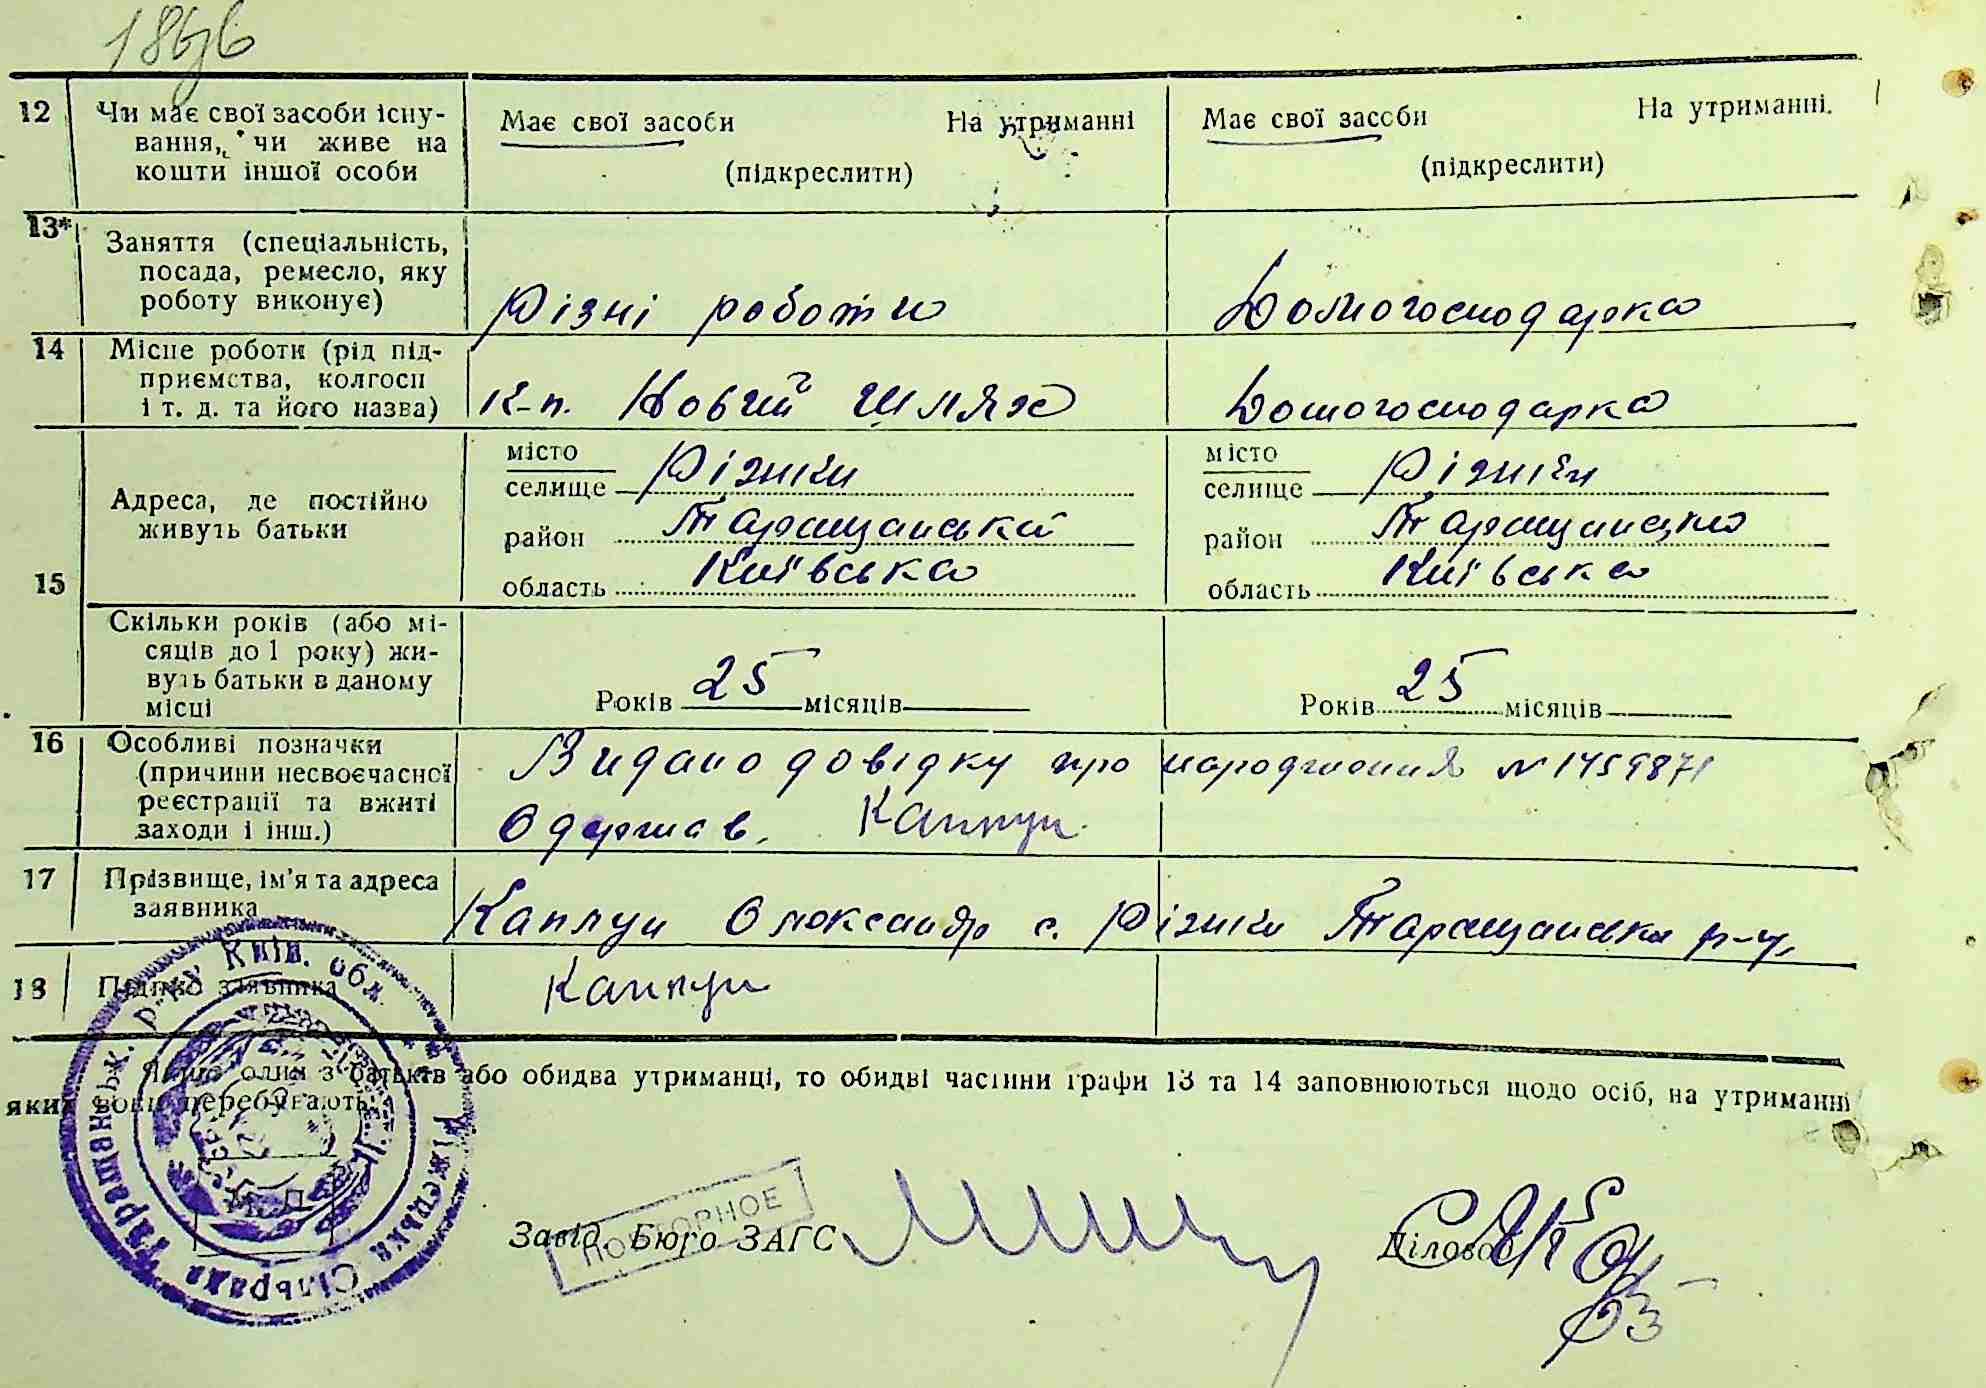 1866
12 Чи має свої засоби існу-
вання, чи живе на
кошти іншої особи
Має свої засоби На утриманні
(підкреслити)
Має свої засоби На утриманні.
(підкреслити)
13* Заняття (спеціальність,
посада, ремесло, яку
роботу виконує)
Різні роботи
Домогосподарка
14 Місце роботи (рід під-
приємства, колгосп
і т. д. та його назва)
К-п. Новий Шлях
Домогосподарка
15
Адреса, де постійно
живуть батьки
місто
селище Ріжки
район Таращанський
область Київська
місто
селище Ріжки
район
область Київська
Скільки років (або мі-
сяців до 1 року) жи-
вуть батьки в даному
місці
Років 25 місяців
Років 25 місяців
16 Особливі позначки
(причини несвоєчасної
реєстрації та вжиті
заходи і інш.)
Видано довідку про народження N 1459871
Одержав. Каплун
17 Прізвище, ім'я та адреса
заявника
Каплун Олександр с. Ріжки Таращанська р-н,
18 Підпис заявника
Каплун
Якщо один з батьків або обидва утриманці, то обидві частини графи 13 та 14 заповнюються щодо осіб, на утриманні
яких вони перебувають.
Таращанськ. р-ну Київ. обл.
Ріжецька Сільрада
Завід. Бюро ЗАГС
ПОВТОРНОЕ
Діловод